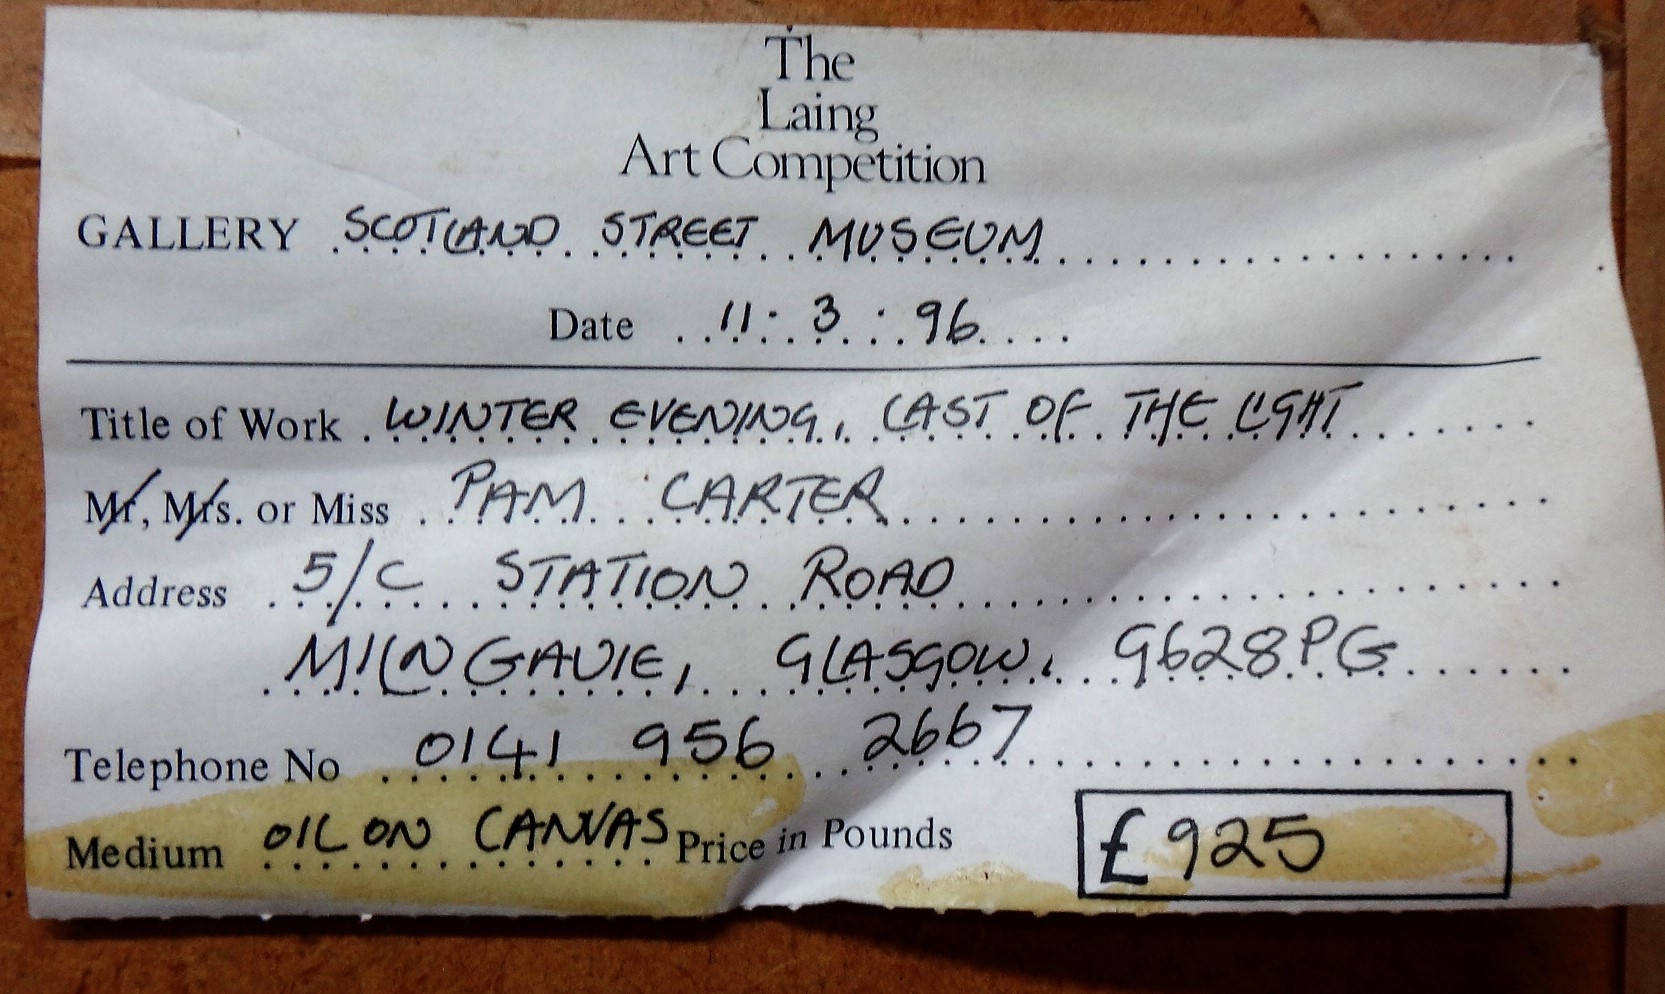 The
Laing
Art Competition
GALLERY SCOTLAND STREET MUSEUM
Date 11. 3. 96
Title of Work WINTER EVENING, LAST OF THE LIGHT
Mr, Mrs. or Miss PAM CARTER
Address 5/C STATION ROAD
MILNGAVIE, GLASGOW, G628PG
Telephone No 0141 956 2667
Medium OIL ON CANVAS Price in Pounds £925